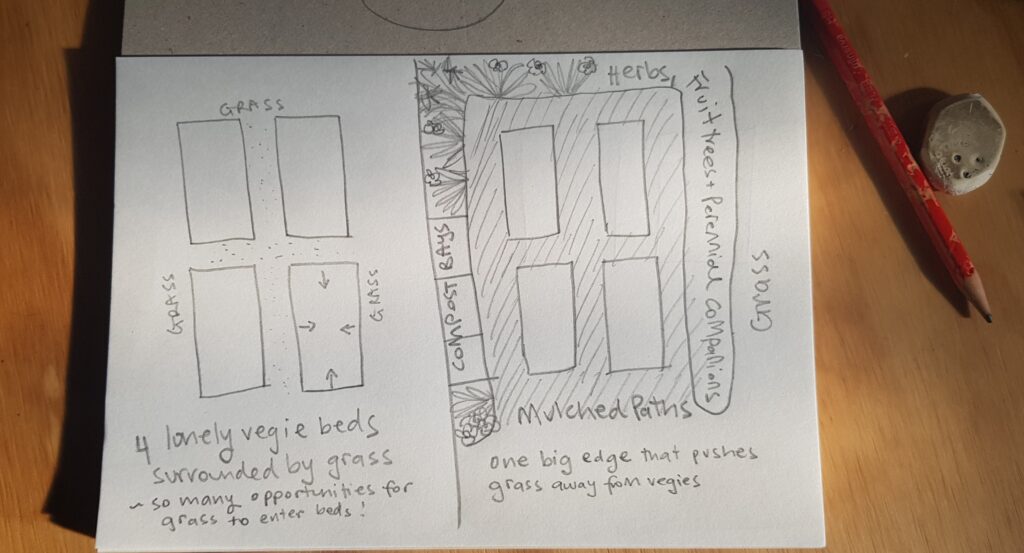 GRASS
GRASS
GRASS
4 lonely vegie beds
surrounded by grass
~ so many opportunities for
grass to enter beds!
Herbs,
Fruit trees + Perennial Companions
GRASS
COMPOST BAYS
Mulched Paths
one big edge that pushes
grass away from vegies